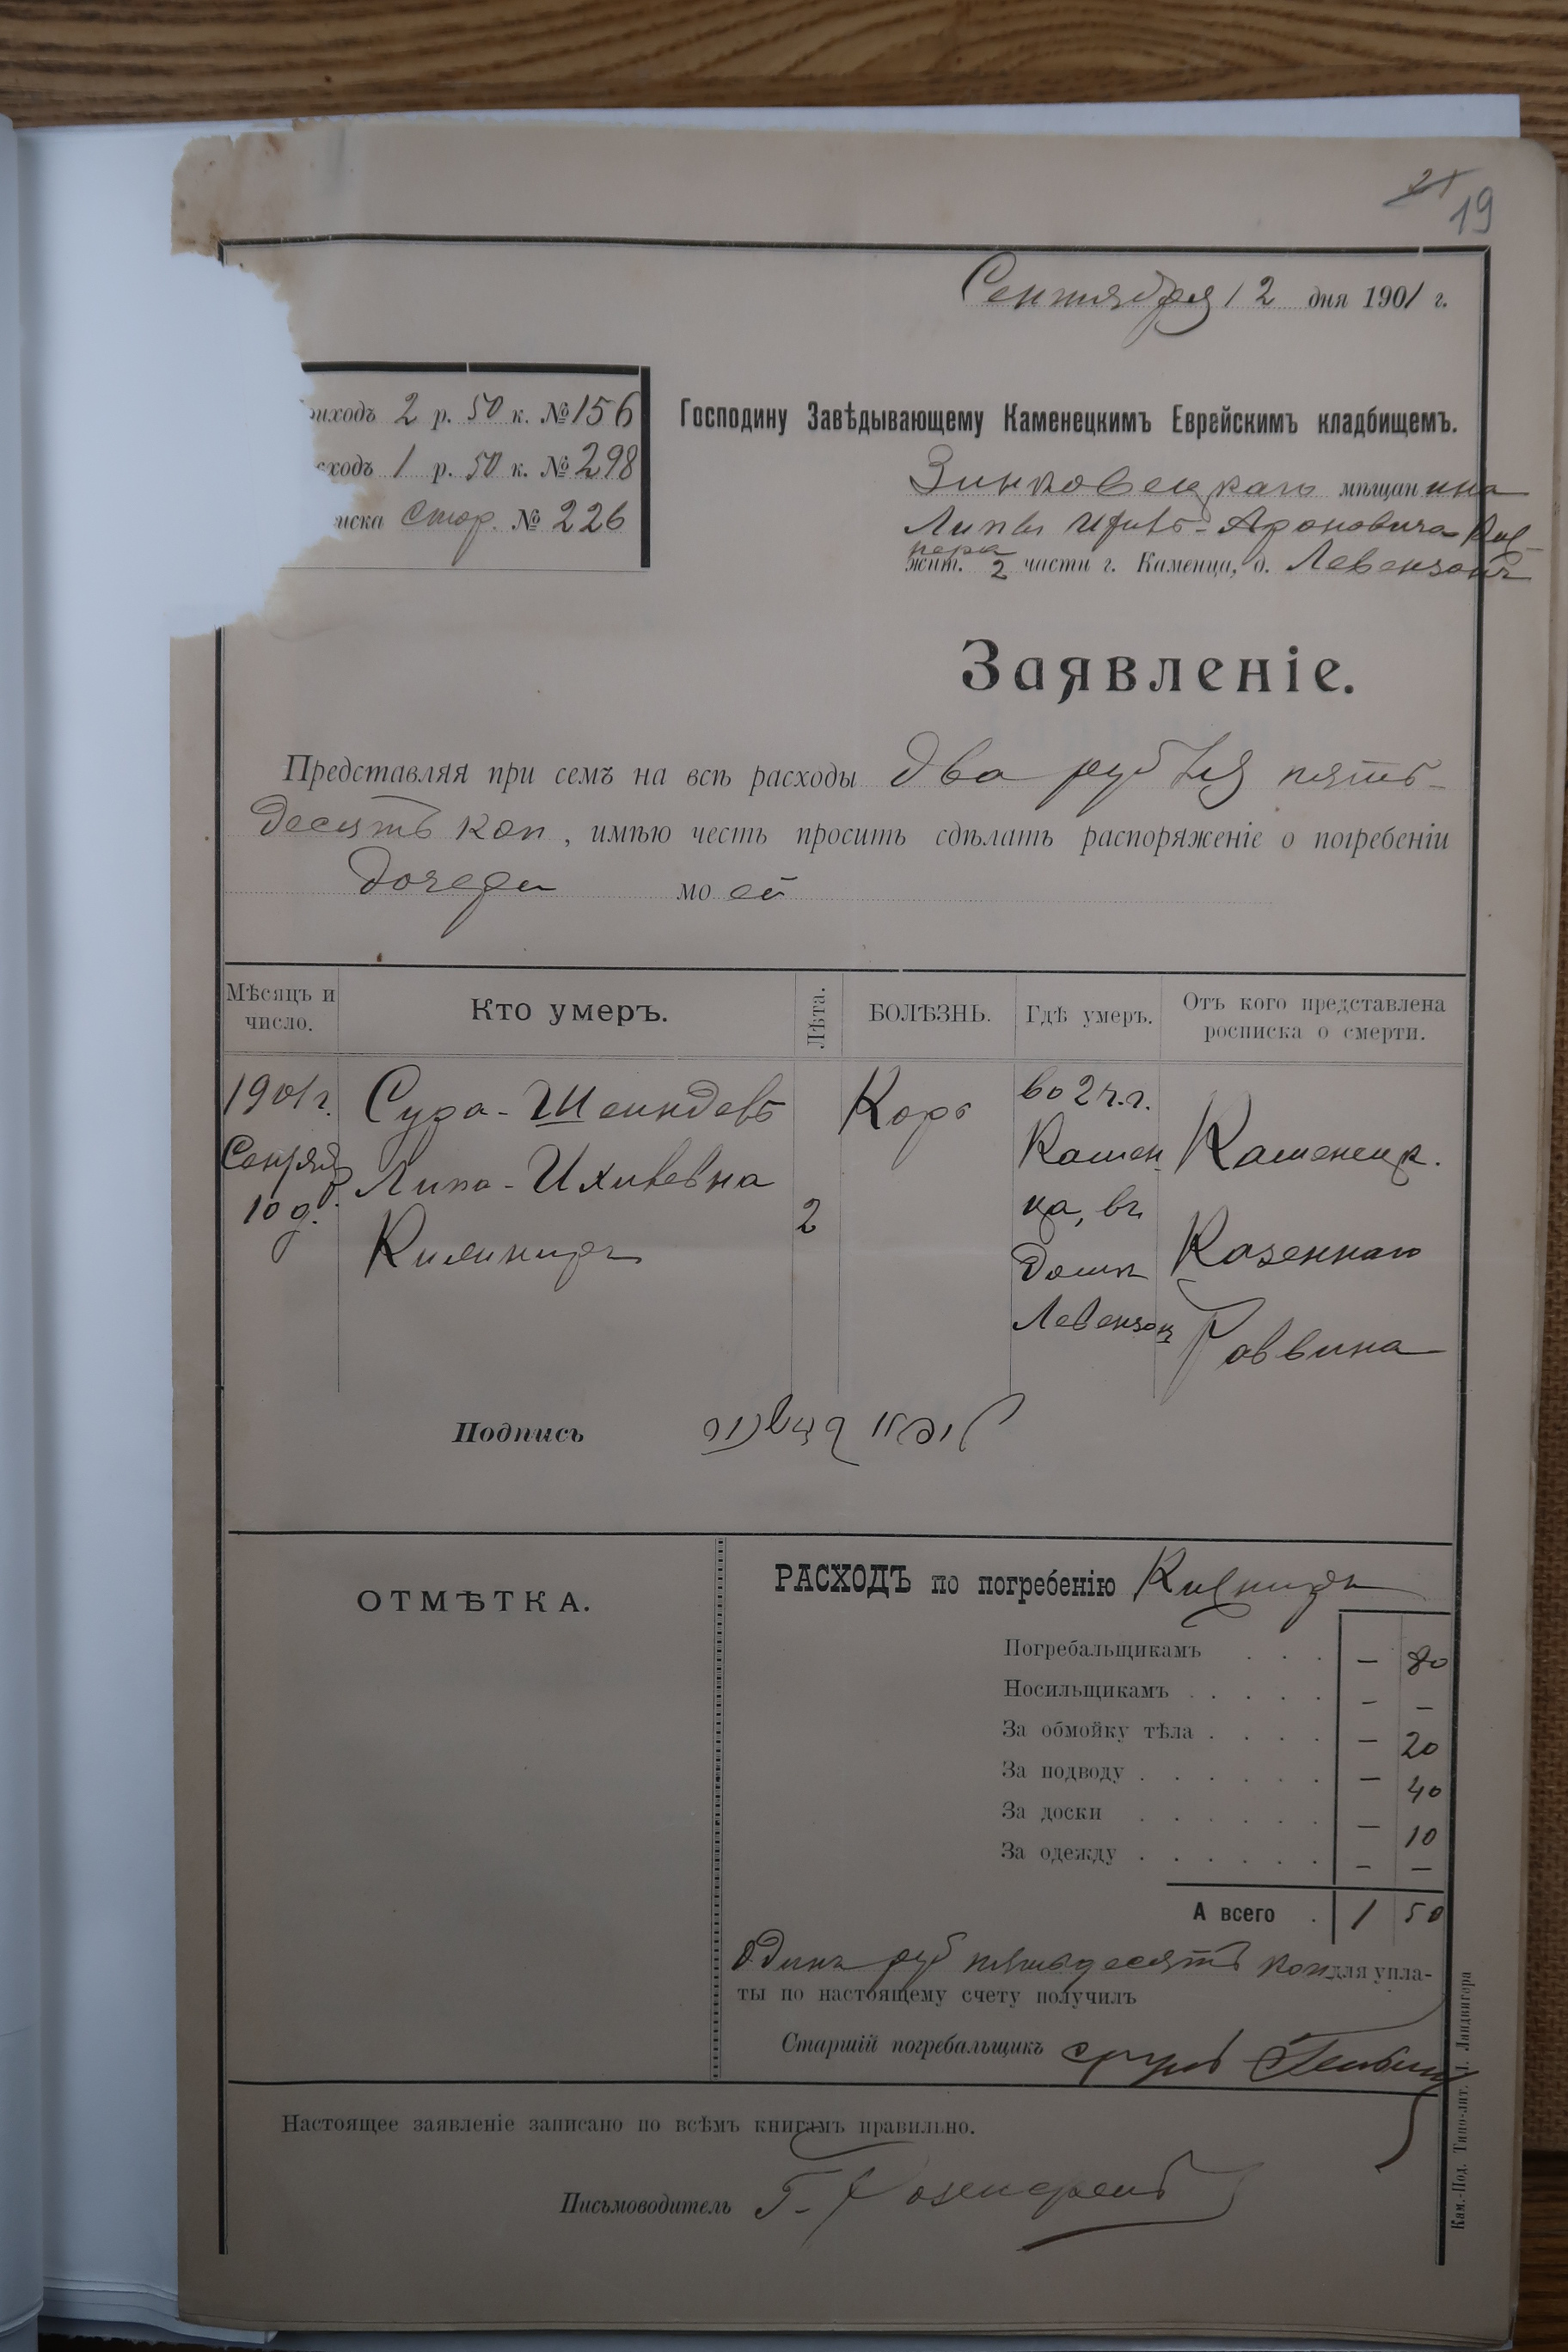 21
19
Сентября 12 дня 1901 г.
риходъ 2 р. 50 к. № 156
сходъ 1 р. 50 к. № 298
иска стор. № 226
Господину Завѣдывающему Каменецкимъ Еврейскимъ кладбищемъ.
Зинковецкаго мѣщанина
Липы Ароновича
жит. 2 части г. Каменца, д. Левензонъ
Заявленіе.
Представляя при семъ на всѣ расходы два рубля пять-
десятъ коп, имѣю честь просить сдѣлать распоряженіе о погребеніи
дочери моей
Мѣсяцъ и число.
Кто умеръ.
Лѣта.
БОЛѢЗНЬ.
Гдѣ умеръ.
Отъ кого представлена росписка о смерти.
1901 г.
10 д.
Сура-Шеиндель
Липа-
2
Корь
во 2 ч. г.
Камен
ца, въ
домѣ
Левензонъ
Каменецк.
Казеннаго
Раввина
Подпись
ОТМѢТКА.
РАСХОДЪ по погребенію
Погребальщикамъ . . . — 80
Носильщикамъ . . . . . — —
За обмойку тѣла . . . . — 20
За подводу . . . . . . — 40
За доски . . . . . . — 10
За одежду . . . . . . — —
А всего . 1 50
Одинъ руб пятьдесятъ коп для упла-
ты по настоящему счету получилъ
Старшій погребальщикъ
Настоящее заявленіе записано по всѣмъ книгамъ правильно.
Письмоводитель Г.
Кам.-Под. Типо-лит. Л. Ландвигера